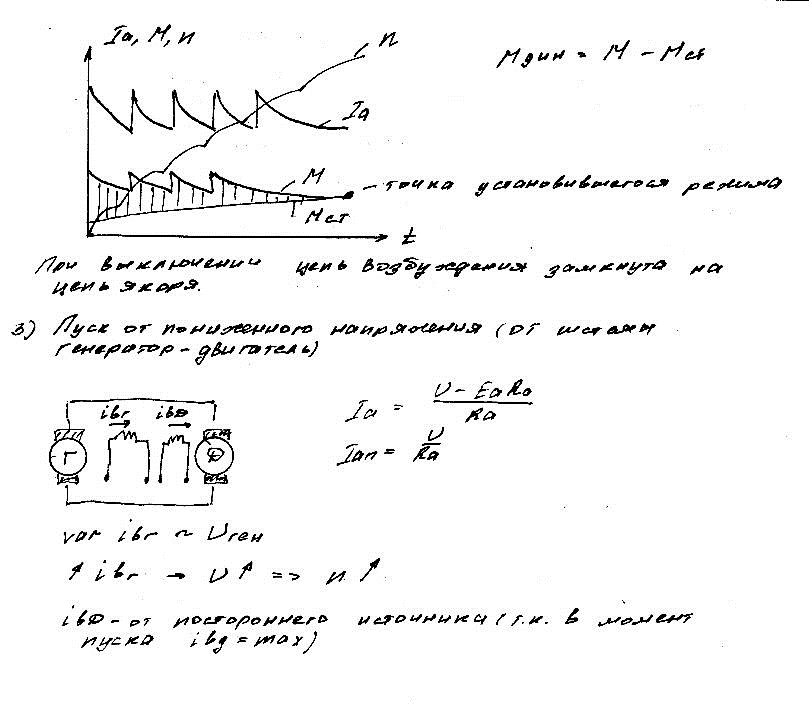 Iа, М, n
n
Мдин = М - Мст
Iа
М
- точка установившегося режима
Мст
t
При выключении цепь возбуждения замкнута на
цепь якоря.
3) Пуск от пониженного напряжения (от системы
генератор-двигатель)
iвг
iвД
Г
Д
Iа = U - EаRа / Rа
Iап = U / Rа
var iвг ~ Uген
↑ iвг → U↑ => n↑
iвД - от постороннего источника (т.к. в момент
пуска iвд = max)